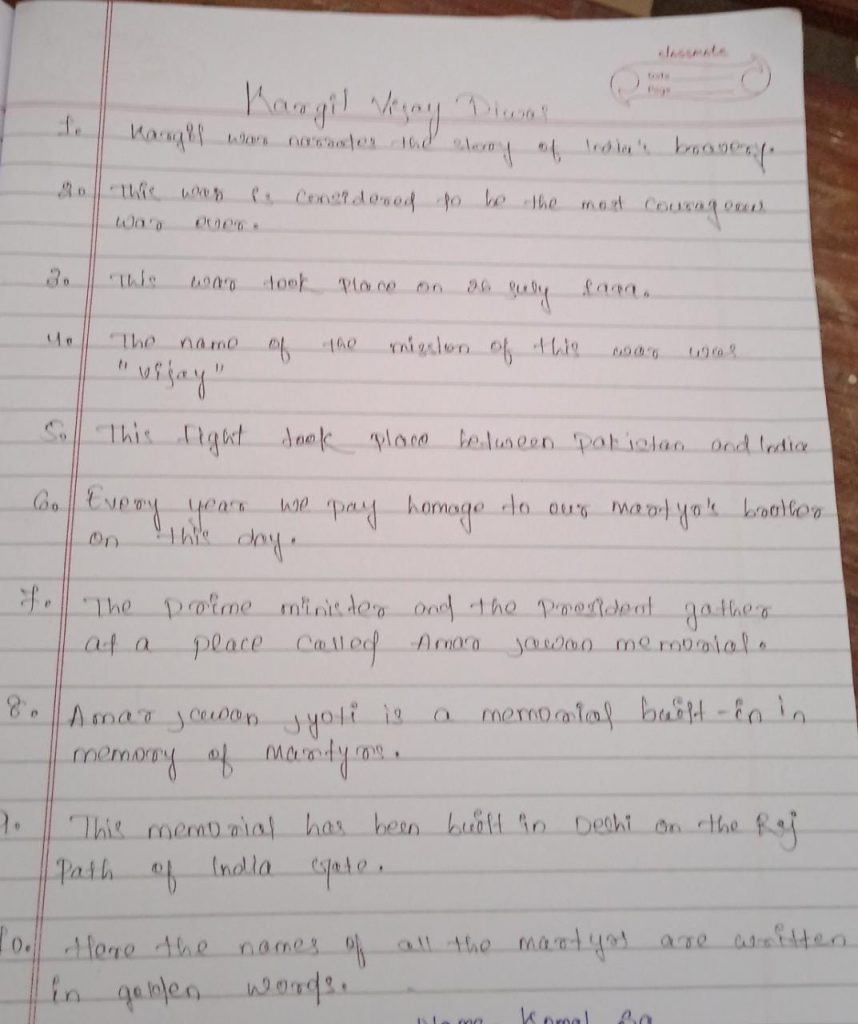 classmate
Date
Page
Kargil Vijay Diwas
1. Kargil war narrates the story of India's bravery.
2. This war is considered to be the most courageous
war ever.
3. This war took place on 26 July 1999.
4. The name of the mission of this war was
"Vijay"
5. This fight took place between Pakistan and India
6. Every year we pay homage to our martyr's brother
on this day.
7. The prime minister and the president gather
at a place called Amar jawan memorial.
8. Amar jawan jyoti is a memorial built-in in
memory of martyrs.
9. This memorial has been built in Delhi on the Raj
Path of India Gate.
10. Here the names of all the martyrs are written
in golden words.
Name Komal